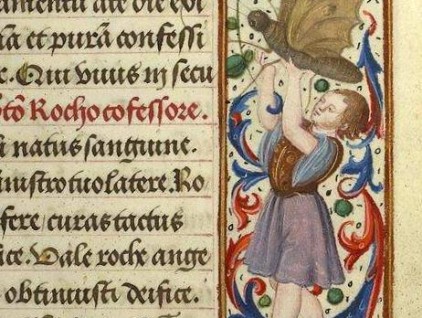 ate die exi
nā et purā confessi
e. Qui viuis in secu
tō Rocho cōfessore.
natus sanguine.
inistro tuo latere. Ro
fere / curas tactus
ice. Vale roche ange
obtinuisti deifice.